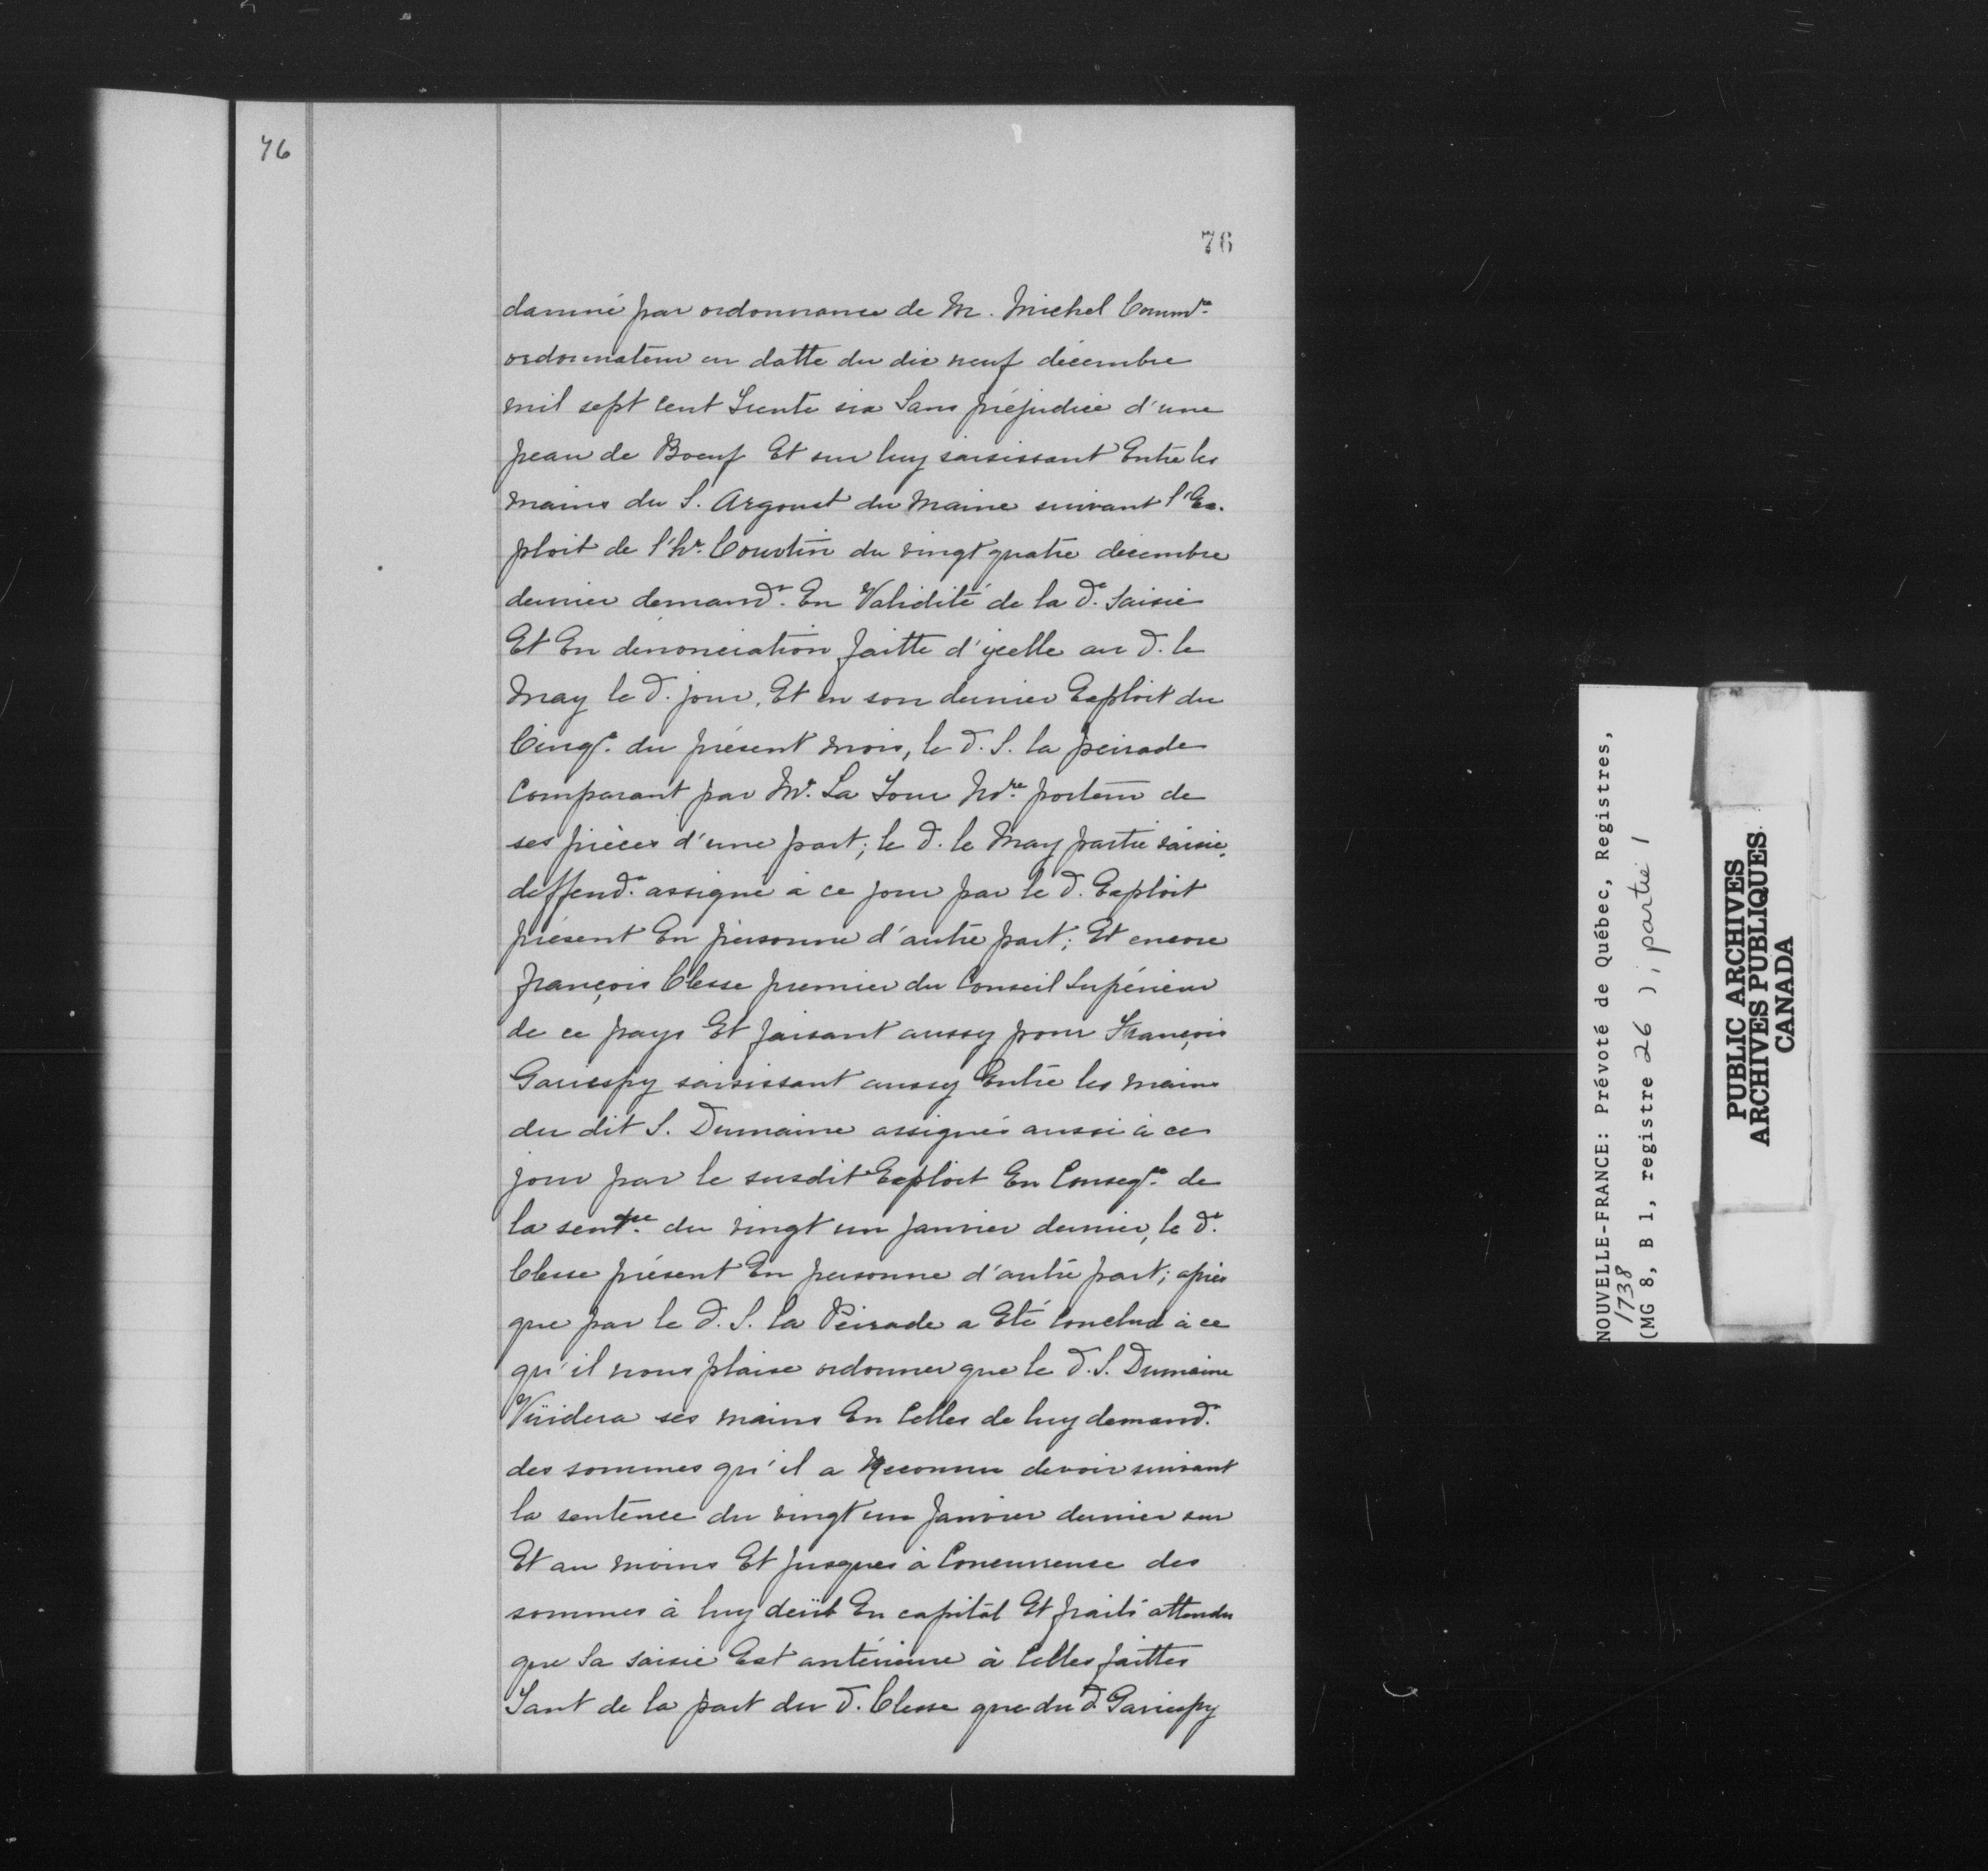 76
76
damné par ordonnance de M. Michel Comm.re
ordonnateur en datte du dix neuf décembre
mil sept cent Trente six Sans préjudice d'une
peau de Boeuf Et sur luy saisissant Entre les
mains du S. Argoust du Maine suivant l'Ex-
ploit de l'h.r Courtin du vingt quatre decembre
dernier demand.r En Validité de la d.e Saisie
Et En denonciation faitte d'ycelle au d. le
May le d. jour, Et en son dernier Exploit du
Cinq.e du présent mois, le d. S. la peirade
Comparant par M.e La Tour No.re porteur de
ses pièces d'une part; le d. le May partie saisie,
deffend.r assigné à ce jour par le d. Exploit
présent En personne d'autre part; Et encore
françois Clesse premier du Conseil Supérieur
de ce pays Et faisant aussy pour François
Gariespy saisissant aussy Entre les mains
du dit S. Dumaine assignés aussi à ce
jour par le susdit Exploit En Conseq.ce de
la sent.ce du vingt un janvier dernier, le d.t
Clesse présent En personne d'autre part; après
que par le d. S. la Peirade a Eté Conclud à ce
qu'il nous plaise ordonner que le d. S. Dumaine
Vüidera ses mains En Celles de luy demand.r
des sommes qu'il a Reconnu devoir suivant
la sentence du vingt un Janvier dernier sur
Et au moins Et Jusques à Concurrence des
sommes à luy deüe En capital Et frais attendu
que Sa saisie Est antérieure à Celles faittes
Tant de la part du d. Clesse que du d. Gariespy
NOUVELLE-FRANCE: Prévoté de Québec, Registres,
1738
(MG 8, B 1, registre 26 ); partie 1
PUBLIC ARCHIVES
ARCHIVES PUBLIQUES
CANADA